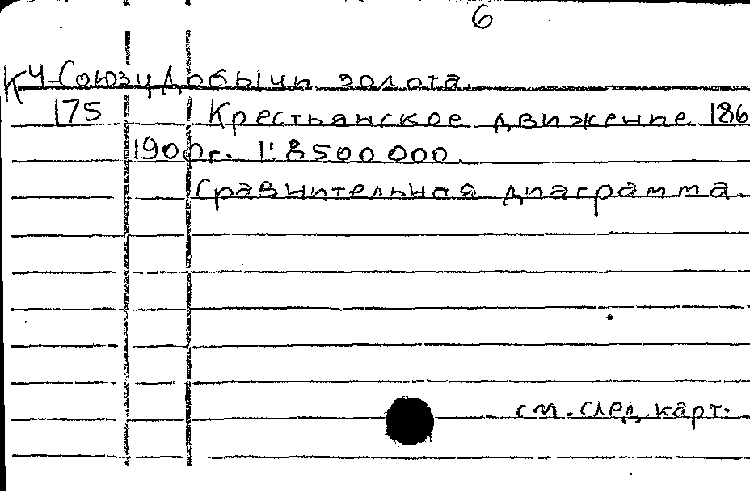 6
КЧ-Союзу добычи золота.
175 Крестьянское движение 186
1900г. 1:8500000.
Сравнительная диаграмма.
см. след. карт.